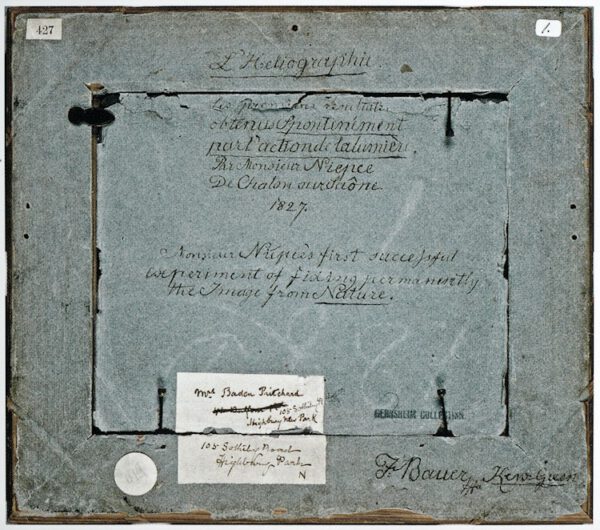 427
1.
L'Heliographie.
Les premiers résultats
obtenus Spontanément
par l'action de la lumière.
Par Monsieur Niepce
De Chalon sur Saône.
1827.
Monsieur Niepce's first successful
experiment of fixing permanently
the Image from Nature.
Mrs Baden Pritchard
105 Sotheby Rd
Highbury New Park
105 Sotheby Road
Highbury Park
N
GERNSHEIM COLLECTION
F. Bauer, Kew Green